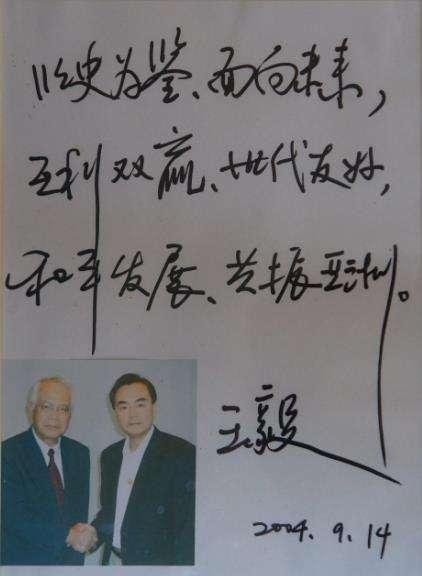 以史为鉴、面向未来，
互利双赢、世代友好，
和平发展、共振亚洲。
王毅
2004. 9. 14